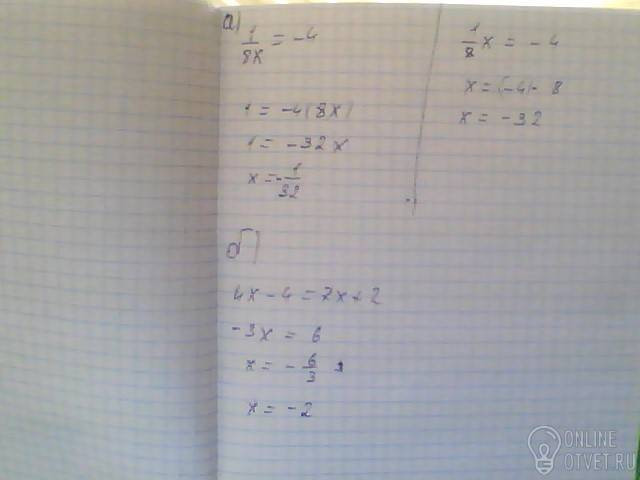 а)
1/8x = -4
1 = -4(8x)
1 = -32x
x = -1/32
1/8 x = -4
x = (-4) · 8
x = -32
б)
4x - 4 = 7x + 2
-3x = 6
x = -6/3
x = -2
ONLINE
OTVET.RU